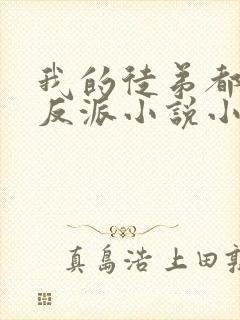 我的徒弟都
反派小説小
真島浩上田敦